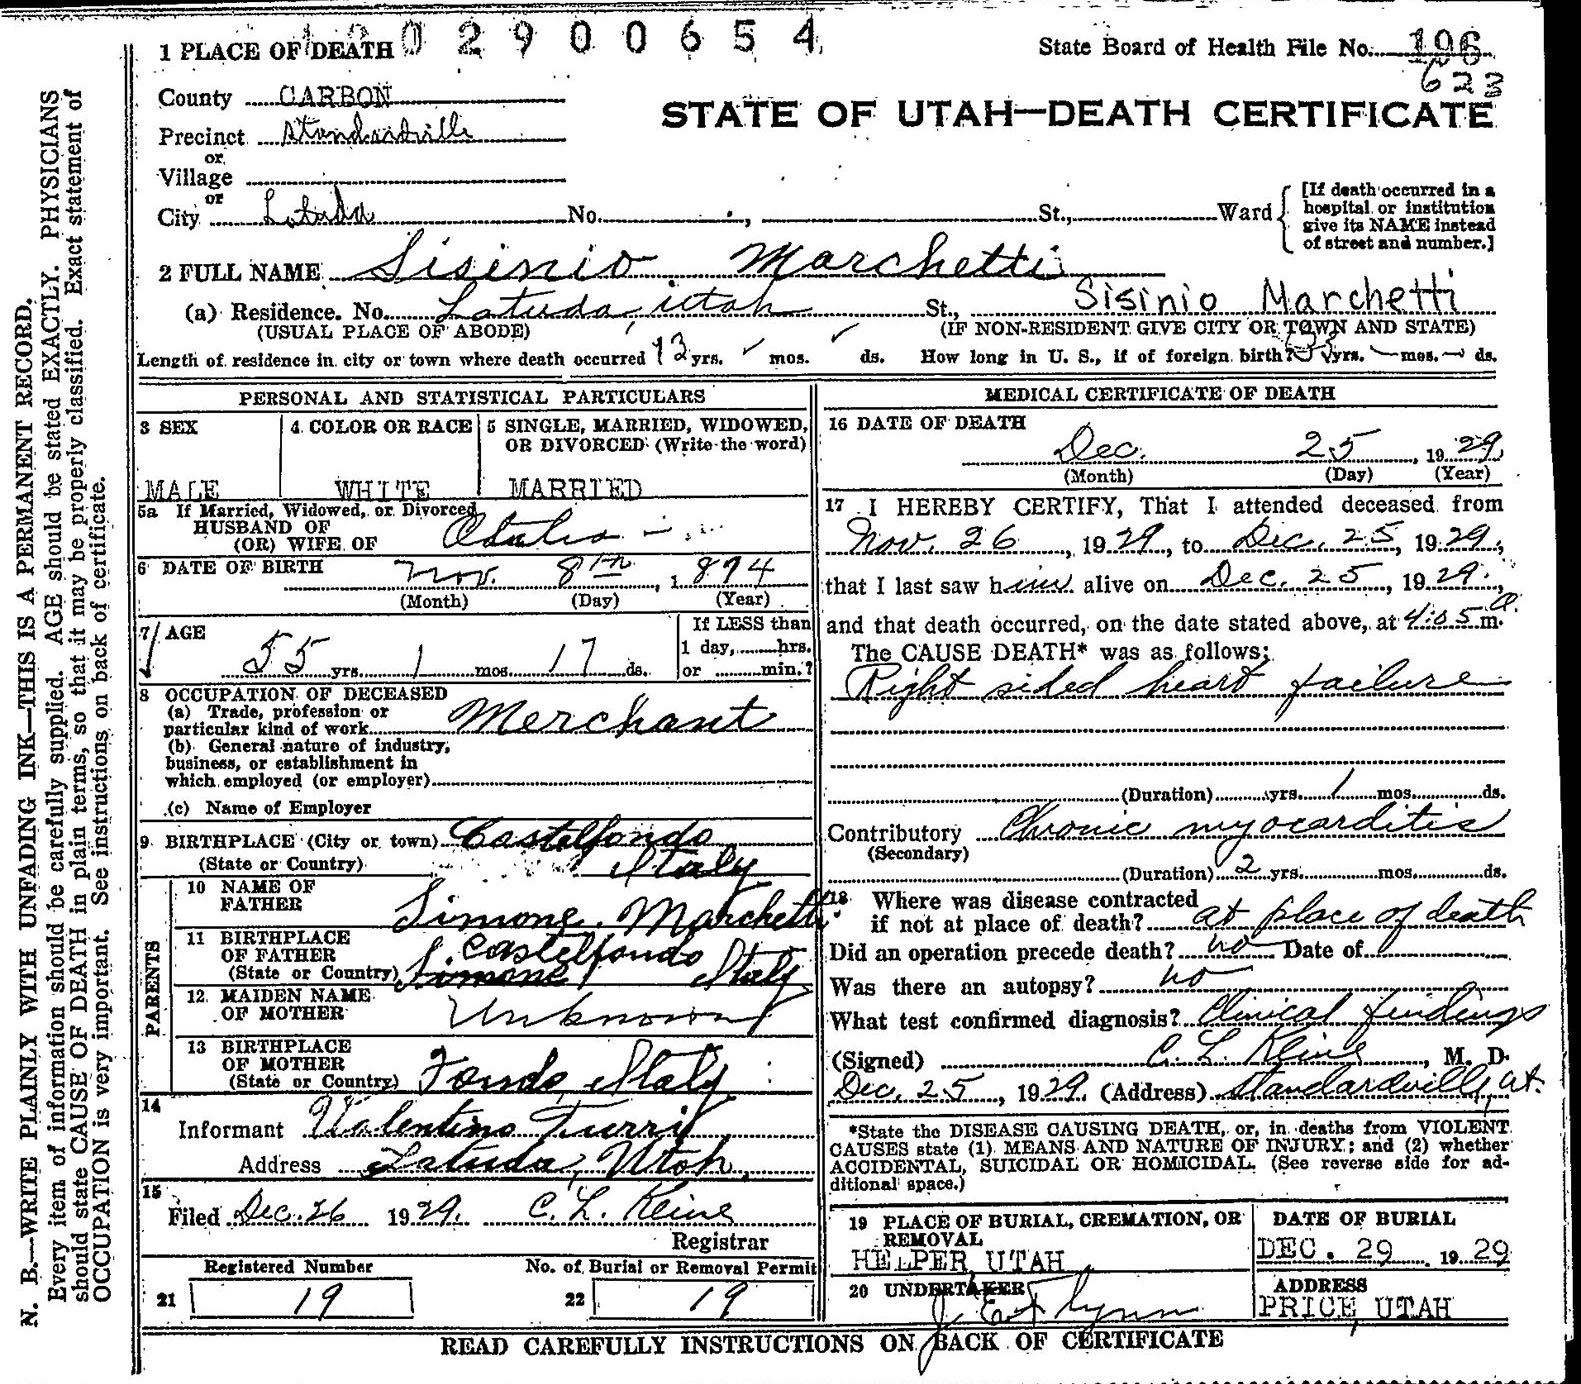 1 PLACE OF DEATH 0 2 9 0 0 6 5 4
State Board of Health File No. 196
623
County CARBON
STATE OF UTAH—DEATH CERTIFICATE
Precinct Standardville
or
Village
or
City Latuda No. St., Ward
[If death occurred in a hospital or institution give its NAME instead of street and number.]
2 FULL NAME Sisinio Marchetti
(a) Residence. No. Latuda, Utah St., Sisinio Marchetti
(USUAL PLACE OF ABODE) (IF NON-RESIDENT GIVE CITY OR TOWN AND STATE)
Length of residence in city or town where death occurred 13 yrs. mos. ds. How long in U. S., if of foreign birth? yrs. mos. ds.
PERSONAL AND STATISTICAL PARTICULARS
3 SEX
MALE
4 COLOR OR RACE
WHITE
5 SINGLE, MARRIED, WIDOWED, OR DIVORCED (Write the word)
MARRIED
5a If Married, Widowed, or Divorced
HUSBAND OF
(OR) WIFE OF
6 DATE OF BIRTH Nov. 8th, 1874
(Month) (Day) (Year)
7 AGE
55 yrs. 1 mos. 17 ds.
If LESS than
1 day, hrs.
or min.?
8 OCCUPATION OF DECEASED
(a) Trade, profession or
particular kind of work Merchant
(b) General nature of industry,
business, or establishment in
which employed (or employer)
(c) Name of Employer
9 BIRTHPLACE (City or town) Castelfondo
(State or Country) Italy
PARENTS
10 NAME OF
FATHER Simone Marchetti
11 BIRTHPLACE
OF FATHER Castelfondo
(State or Country) Simone Italy
12 MAIDEN NAME
OF MOTHER Unknown
13 BIRTHPLACE
OF MOTHER
(State or Country) Fondo, Italy
14
Informant Valentino Turri
Address Latuda, Utah.
15
Filed Dec. 26 1929. C. L. Kline
Registrar
Registered Number No. of Burial or Removal Permit
21 19 22 19
MEDICAL CERTIFICATE OF DEATH
16 DATE OF DEATH
Dec. 25, 1929.
(Month) (Day) (Year)
17 I HEREBY CERTIFY, That I attended deceased from
Nov. 26, 1929, to Dec. 25, 1929,
that I last saw him alive on Dec. 25, 1929.,
and that death occurred, on the date stated above, at 4:05 a. m.
The CAUSE DEATH* was as follows:
Right sided heart failure
(Duration) yrs. 1 mos. ds.
Contributory Chronic myocarditis
(Secondary)
(Duration) 2 yrs. mos. ds.
18 Where was disease contracted
if not at place of death? at place of death
Did an operation precede death? no Date of
Was there an autopsy? no
What test confirmed diagnosis? Clinical findings
(Signed) C. L. Kline, M. D.
Dec. 25, 1929. (Address) Standardville, Ut.
*State the DISEASE CAUSING DEATH, or, in deaths from VIOLENT
CAUSES state (1) MEANS AND NATURE OF INJURY; and (2) whether
ACCIDENTAL, SUICIDAL OR HOMICIDAL. (See reverse side for ad-
ditional space.)
19 PLACE OF BURIAL, CREMATION, OR
REMOVAL
HELPER UTAH
DATE OF BURIAL
DEC. 29 1929
20 UNDERTAKER
J. E. Flynn
ADDRESS
PRICE, UTAH
READ CAREFULLY INSTRUCTIONS ON BACK OF CERTIFICATE
N. B.—WRITE PLAINLY WITH UNFADING INK—THIS IS A PERMANENT RECORD.
Every item of information should be carefully supplied. AGE should be stated EXACTLY. PHYSICIANS
should state CAUSE OF DEATH in plain terms, so that it may be properly classified. Exact statement of
OCCUPATION is very important. See instructions on back of certificate.